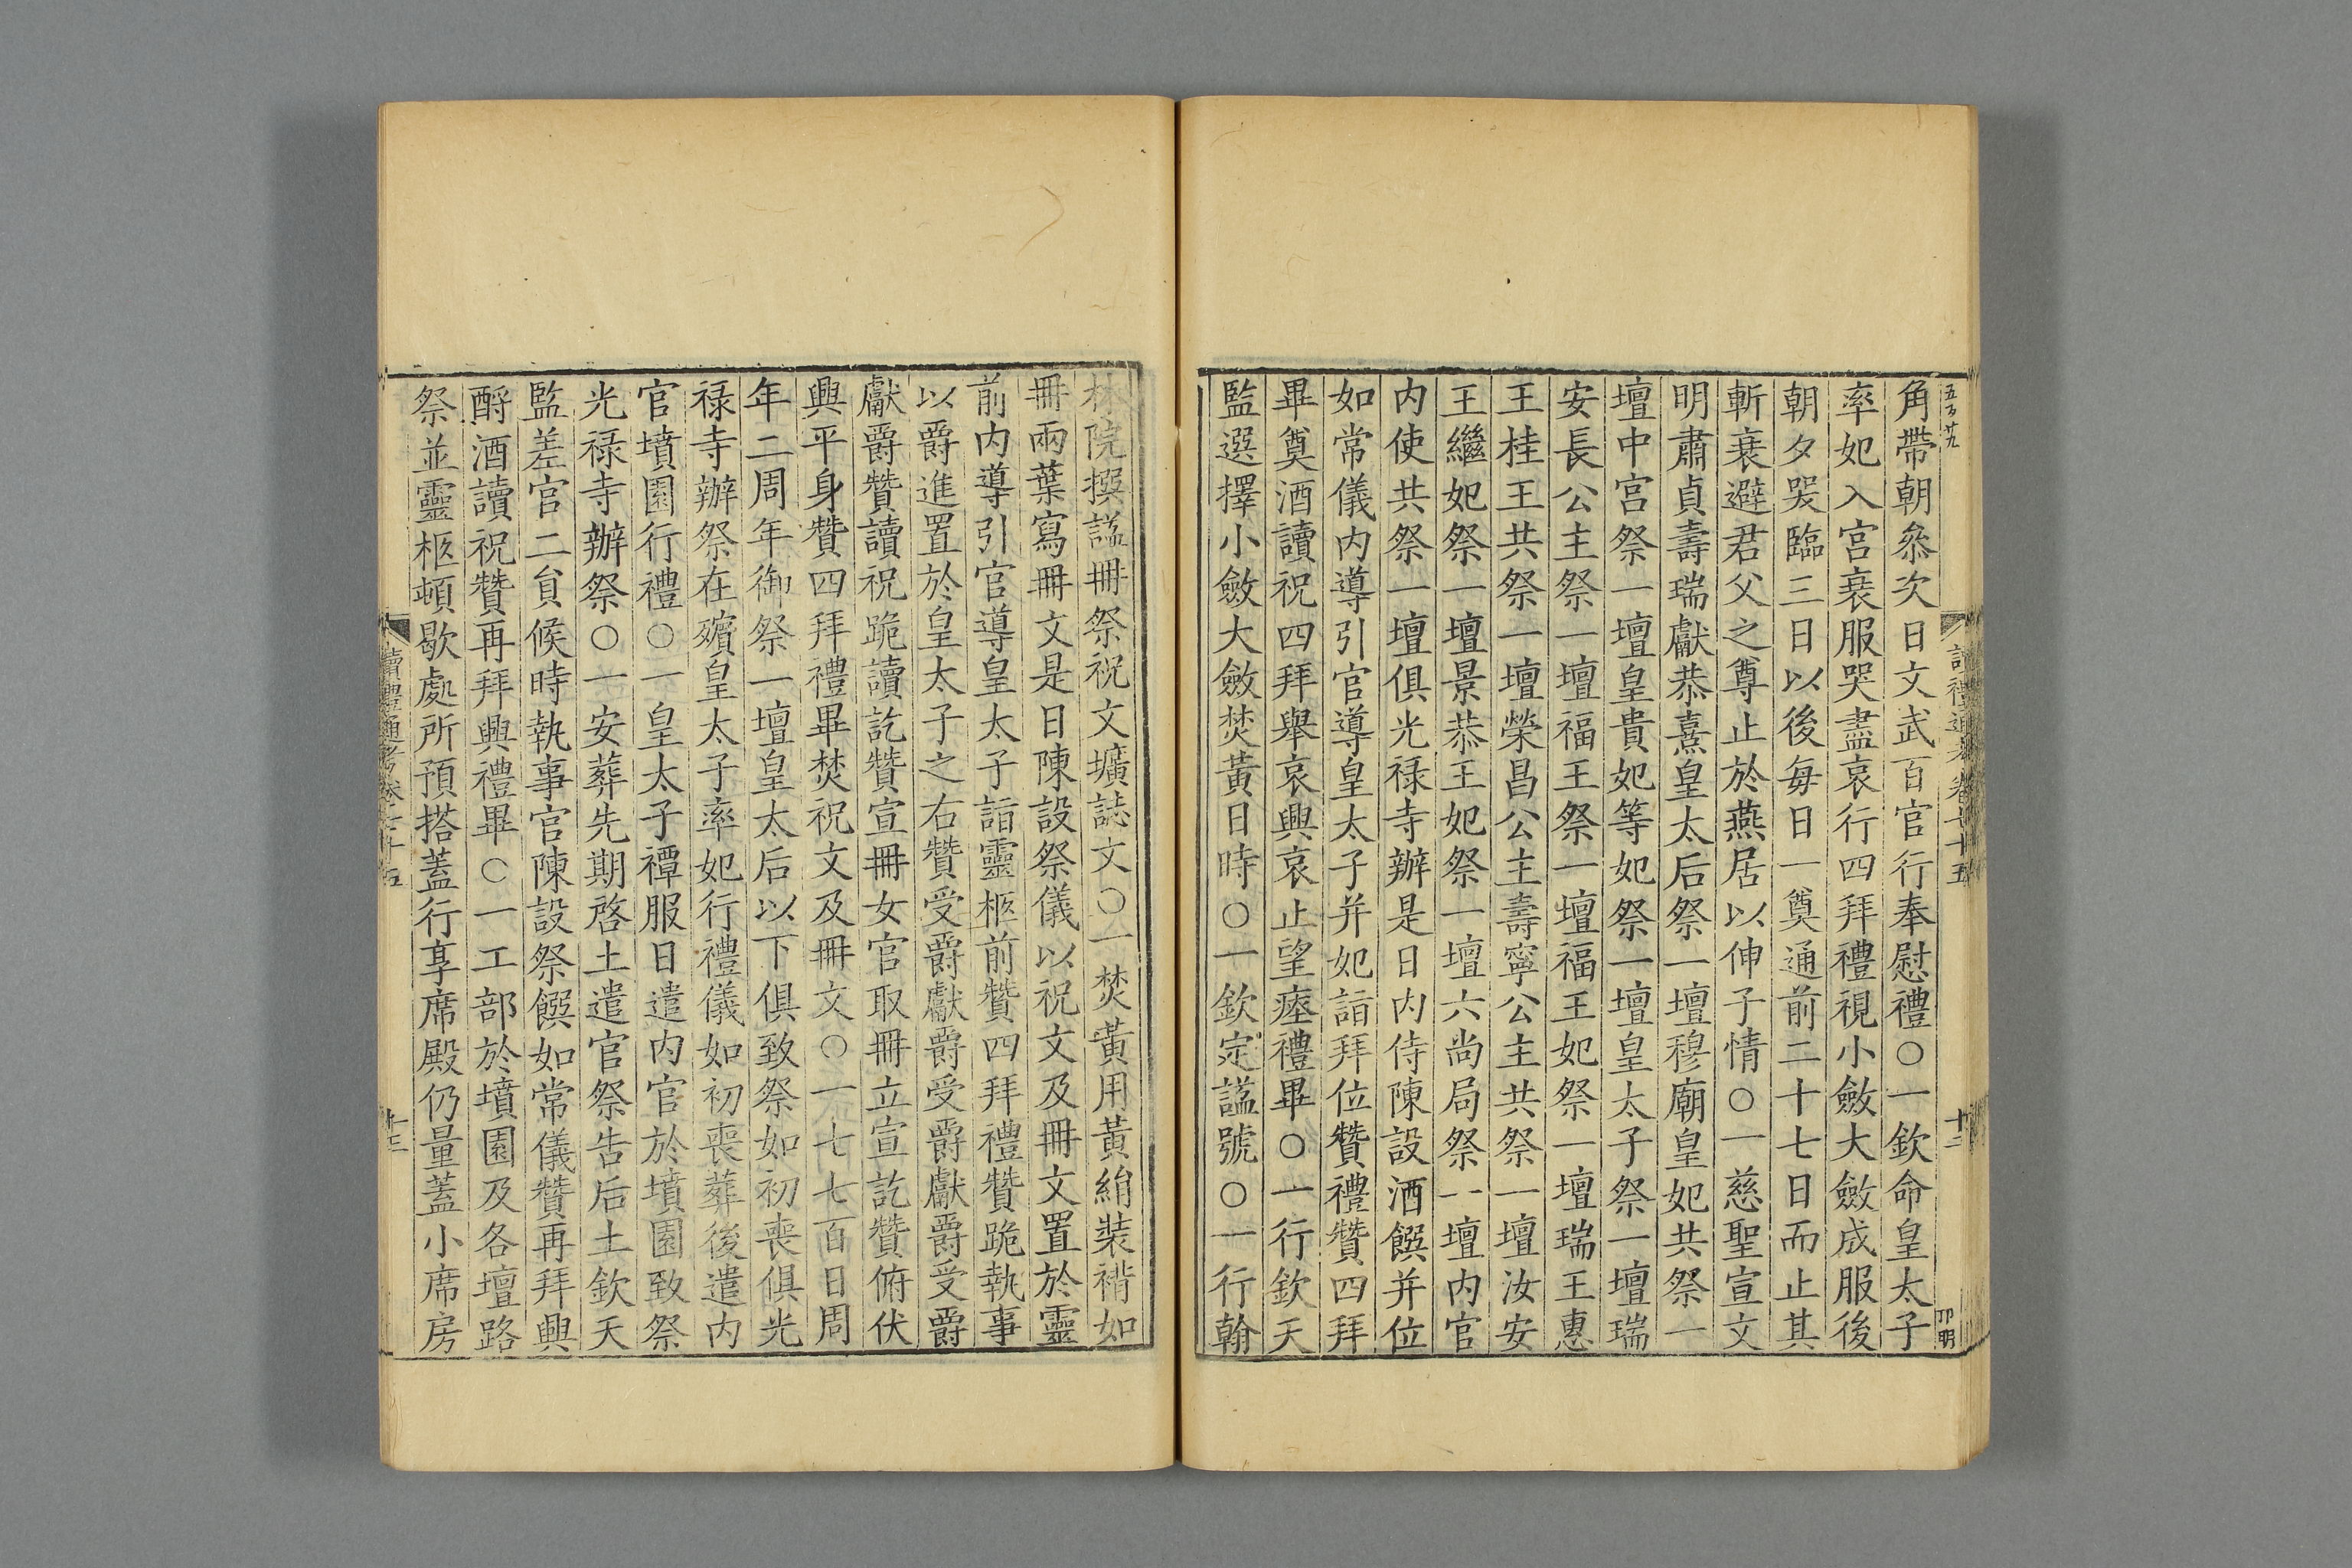 角帶朝叅次日文武百官行奉慰禮○一欽命皇太子
率妃入宮衰服哭盡哀行四拜禮視小斂大斂成服後
朝夕哭臨三日以後每日一奠通前二十七日而止其
斬衰避君父之尊止於燕居以伸子情○一慈聖宣文
明肅貞壽瑞獻恭熹皇太后祭一壇穆廟皇妃共祭一
壇中宮祭一壇皇貴妃等妃祭一壇皇太子祭一壇瑞
安長公主祭一壇福王祭一壇福王妃祭一壇瑞王惠
王桂王共祭一壇榮昌公主壽寧公主共祭一壇汝安
王繼妃祭一壇景恭王妃祭一壇六尚局祭一壇內官
內使共祭一壇俱光祿寺辦是日內侍陳設酒饌并位
如常儀內導引官導皇太子并妃詣拜位贊禮贊四拜
畢奠酒讀祝四拜舉哀興哀止望瘞禮畢○一行欽天
監選擇小斂大斂焚黃日時○一欽定諡號○一行翰
十二
林院撰諡冊祭祝文壙誌文○一焚黃用黃絹裝褙如
冊兩葉寫冊文是日陳設祭儀以祝文及冊文置於靈
前內導引官導皇太子詣靈柩前贊四拜禮贊跪執事
以爵進置於皇太子之右贊受爵獻爵受爵獻爵受爵
獻爵贊讀祝跪讀訖贊宣冊女官取冊立宣訖贊俯伏
興平身贊四拜禮畢焚祝文及冊文○一七七百日周
年二周年御祭一壇皇太后以下俱致祭如初喪俱光
祿寺辦祭在殯皇太子率妃行禮儀如初喪葬後遣內
官墳園行禮○一皇太子禫服日遣內官於墳園致祭
光祿寺辦祭○一安葬先期啓土遣官祭告后土欽天
監差官二貟候時執事官陳設祭饌如常儀贊再拜興
酹酒讀祝贊再拜興禮畢○一工部於墳園及各壇路
祭並靈柩頓歇處所預搭蓋行享席殿仍量蓋小席房
讀禮通考卷七十五